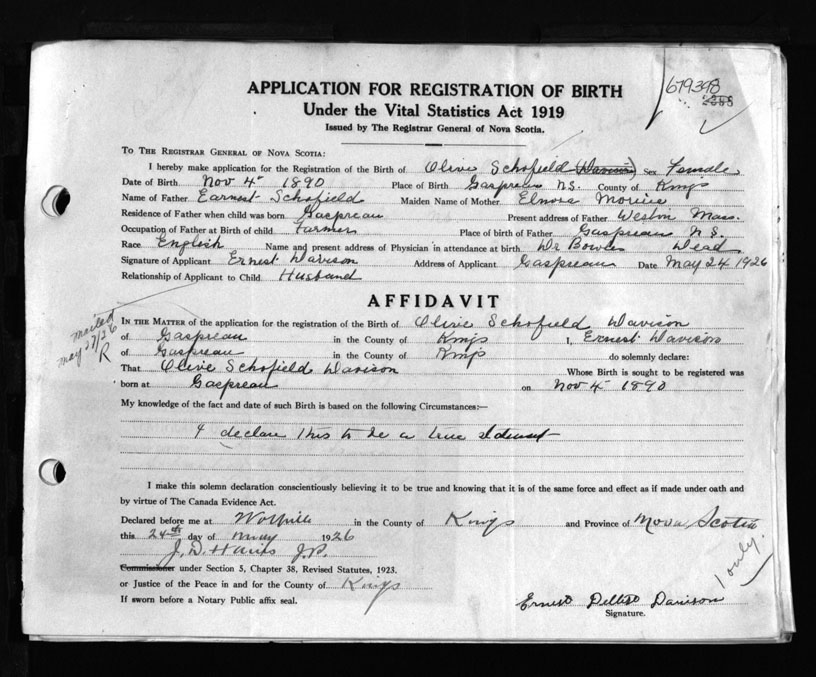 APPLICATION FOR REGISTRATION OF BIRTH
679398
Under the Vital Statistics Act 1919
Issued by The Registrar General of Nova Scotia.
TO THE REGISTRAR GENERAL OF NOVA SCOTIA:
I hereby make application for the Registration of the Birth of Olive Schofield (Davison) Sex Female
Date of Birth Nov 4th 1890 Place of Birth Gaspreau N.S. County of Kings
Name of Father Earnest Schofield Maiden Name of Mother Elnora
Residence of Father when child was born Gaspreau Present address of Father Weston Mass.
Occupation of Father at Birth of child Farmer Place of birth of Father Gaspreau N S.
Race English Name and present address of Physician in attendance at birth Dr Bowles Dead
Signature of Applicant Ernest Davison Address of Applicant Gaspreau Date May 24 1926
Relationship of Applicant to Child Husband
AFFIDAVIT
mailed
may 27/26
R
IN THE MATTER of the application for the registration of the Birth of Olive Schofield Davison
of Gaspreau in the County of Kings I, Ernest Davison
of Gaspreau in the County of Kings do solemnly declare:
That Olive Schofield Davison Whose Birth is sought to be registered was
born at Gaspreau on Nov 4th 1890
My knowledge of the fact and date of such Birth is based on the following Circumstances:—
I declare this to be a true
I make this solemn declaration conscientiously believing it to be true and knowing that it is of the same force and effect as if made under oath and
by virtue of The Canada Evidence Act.
Declared before me at Wolfville in the County of Kings and Province of Nova Scotia
this 24th day of May 1926
J. D. J.P.
Commissioner under Section 5, Chapter 38, Revised Statutes, 1923.
or Justice of the Peace in and for the County of Kings
1 only.
If sworn before a Notary Public affix seal.
Ernest Davison
Signature.